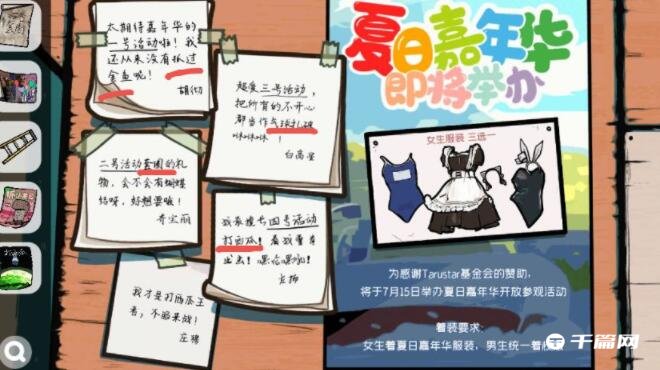 太期待嘉年华的
一号活动啦！我
还从来没有抓过
金鱼呢！
胡彻
超爱三号活动，
把所有的不开心
都当作气球扎破
咻咻咻！
白高星
二号活动套圈的礼
物，会不会有蝴蝶
结呀，好想要嘛！
奇宝丽
我表
四号活动
打西瓜！看我
我才是打西瓜王
者，不服来战！
庄
夏日嘉年华
即将举办
女生服装 三选一
为感谢Tarustar基金会的赞助，
将于7月15日举办夏日嘉年华开放参观活动
着装要求：
女生着夏日嘉年华服装，男生统一着
千篇网